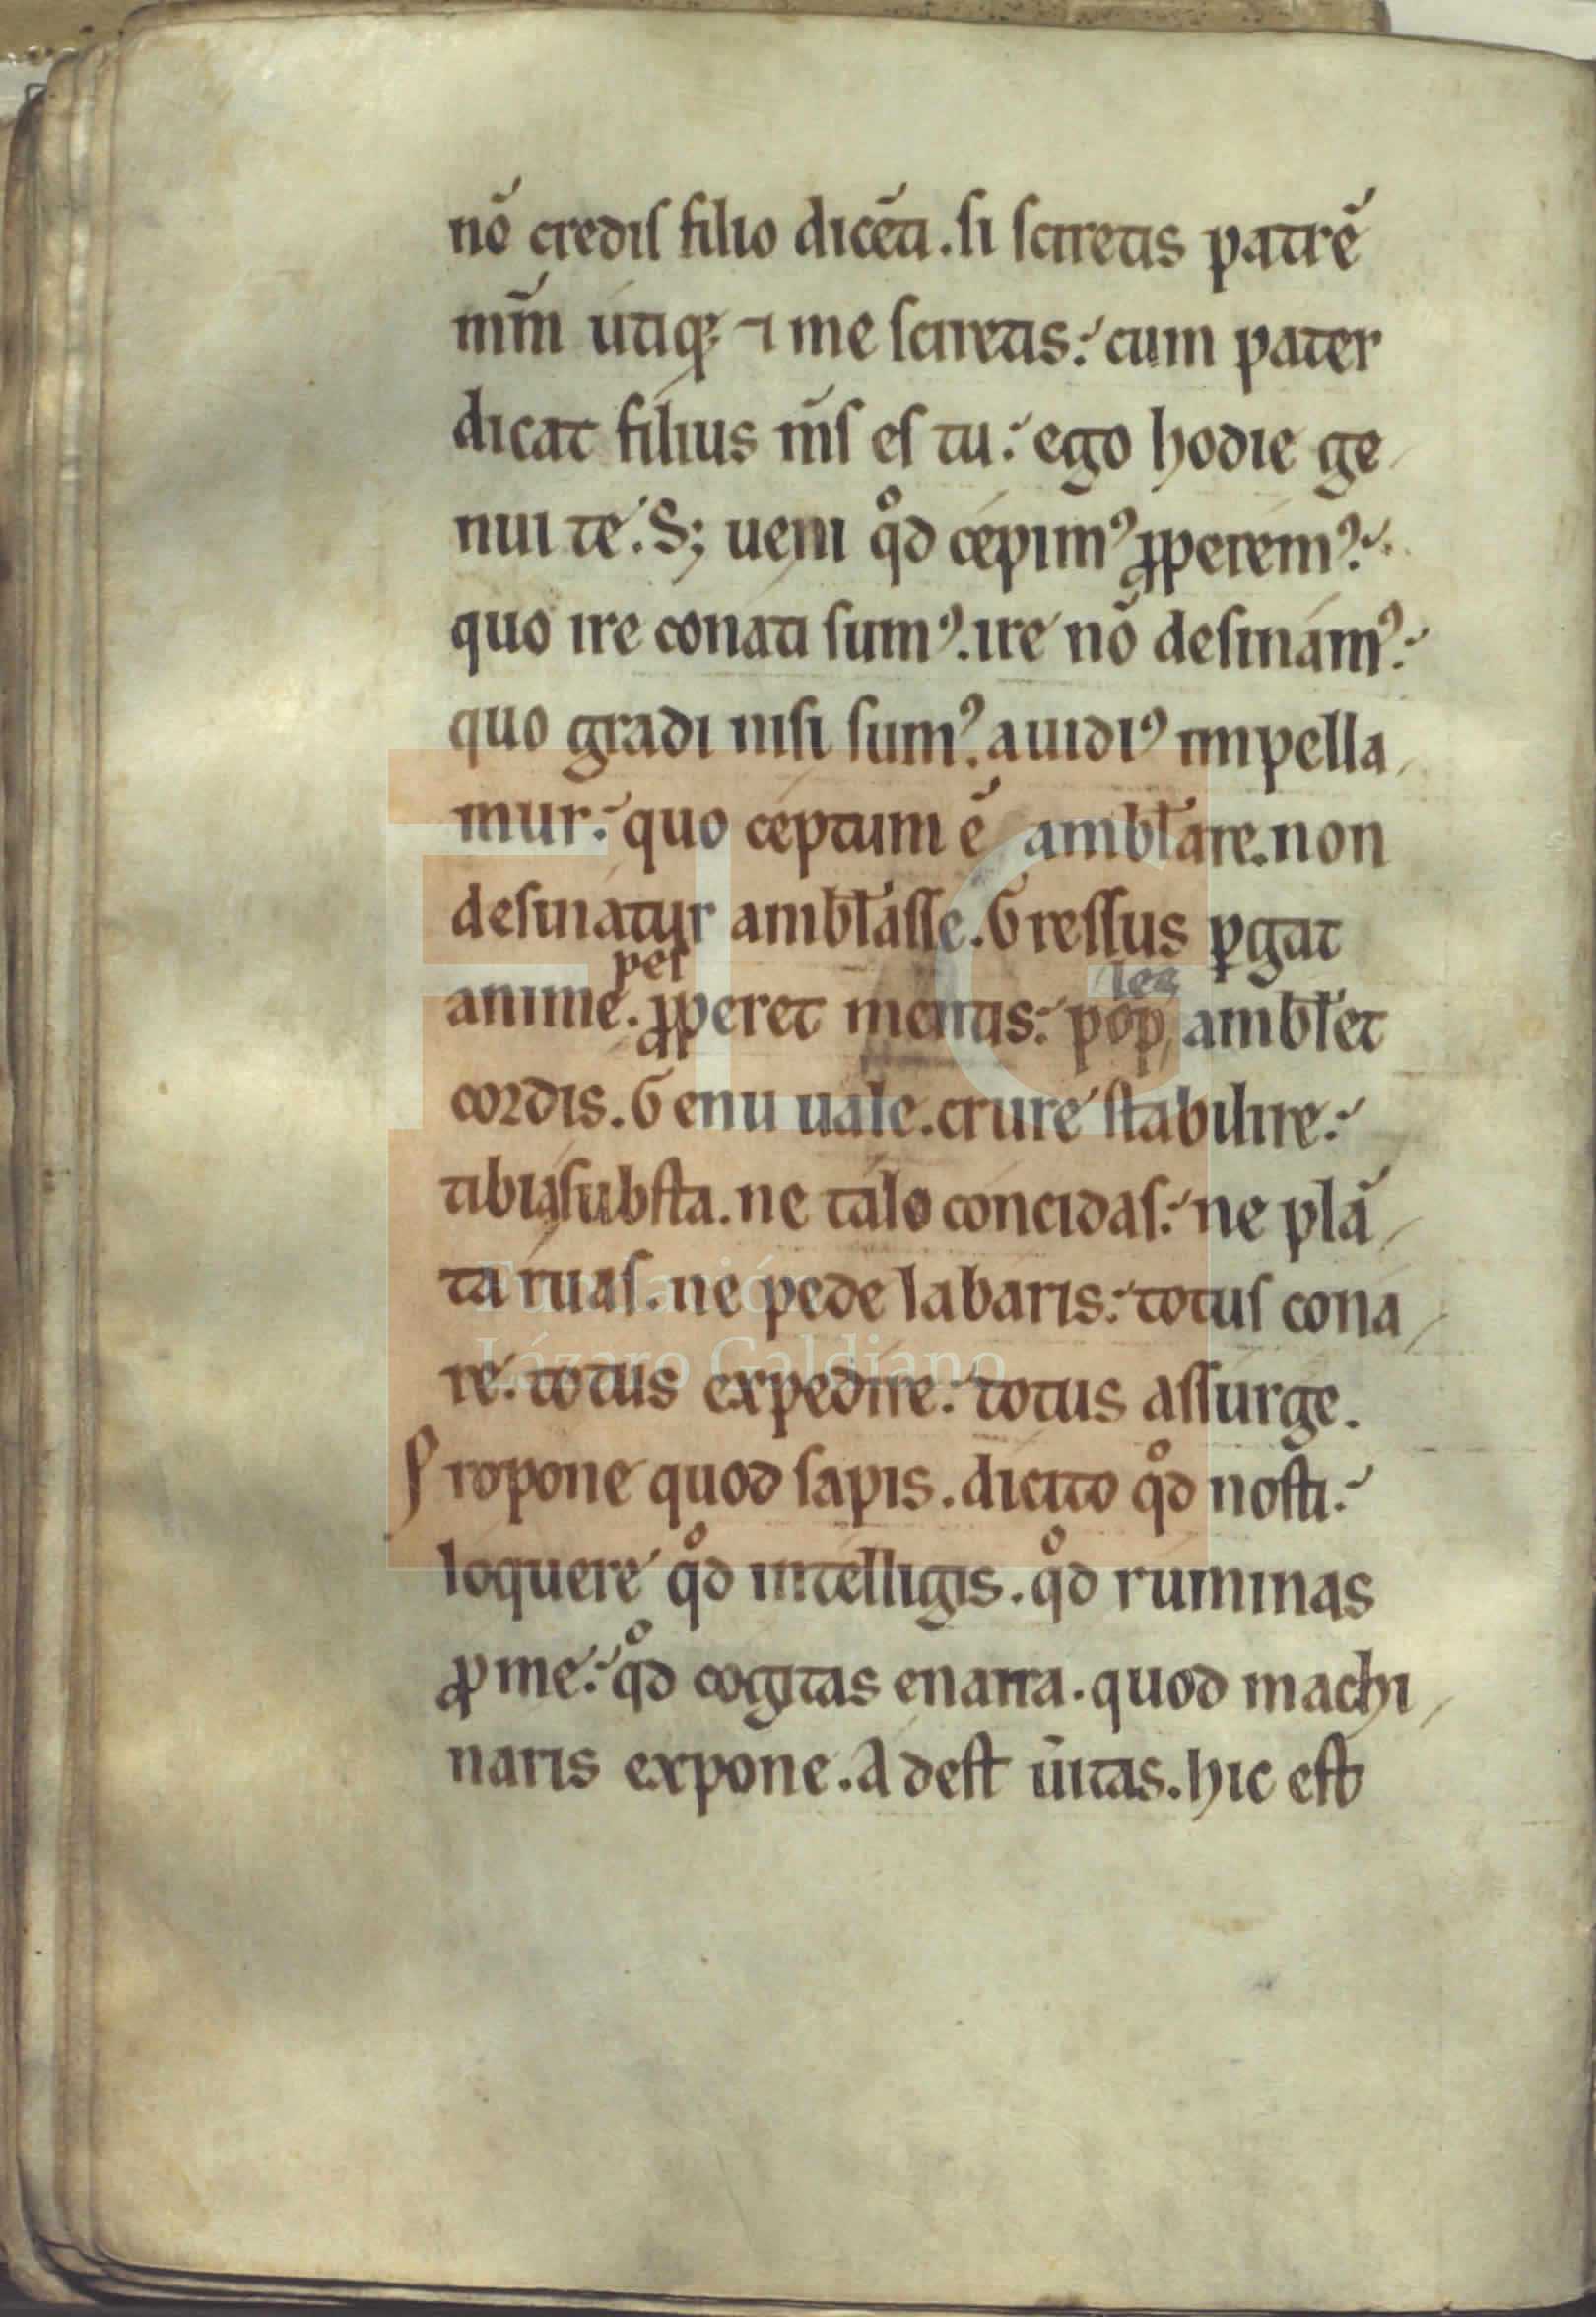 nō credis filio dicēti. si sciretis patrē
mm̄ utiq; ⁊ me sciretis: cum pater
dicat filius m̄s es tu: ego hodie ge-
nui te. S; ueni qͦd cepimꝰ ꝓperemꝰ:
quo ire conati sumꝰ. ire nō desinamꝰ:
quo gradi nisi sumꝰ. auidiꝰ impella-
mur: quo ceptum ē ambl̄are. non
desinatur ambl̄asse. Gressus ꝑgat
pes
anime. ꝓperet mentis: pop, ambl̄et
cordis. Genu uale. crure stabilire:
tibia substa. ne talo concidas: ne plā-
ta ruas. ne pede labaris: totus cona-
re. totus expedire: totus assurge.
Propone quod sapis. dicito qͦd nosti:
loquere qͦd intelligis. qͦd ruminas
ꝓme: qͦd cogitas enarra. quod machi-
naris expone. Adest ūitas. hic est
Fundación
Lázaro Galdiano